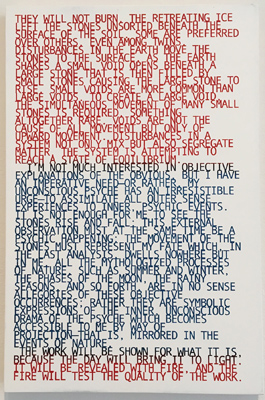 THEY WILL NOT BURN. THE RETREATING ICE
LEFT THE STONES UNSORTED BENEATH THE
SURFACE OF THE SOIL. SOME ARE PREFERRED
OVER OTHERS, EVEN AMONG TWINS
DISTURBANCES IN THE EARTH MOVE THE
STONES TO THE SURFACE. AS THE EARTH
SHAKES A SMALL VOID OPENS BENEATH A
LARGE STONE THAT IS THEN FILLED BY
SMALL STONES, CAUSING THE LARGE STONE TO
RISE. SMALL VOIDS ARE MORE COMMON THAN
LARGE VOIDS. TO CREATE A LARGE VOID
THE SIMULTANEOUS MOVEMENT OF MANY SMALL
STONES IS REQUIRED, SOMETHING
ALTOGETHER RARE. VOIDS ARE NOT THE
CAUSE OF ALL MOVEMENT BUT ONLY OF
UPWARD MOVEMENT. DISTURBANCES IN A
SYSTEM NOT ONLY MIX BUT ALSO SEGREGATE
MATTER. THE SYSTEM IS ATTEMPTING TO
REACH A STATE OF EQUILIBRIUM.
I'M NOT MUCH INTERESTED IN OBJECTIVE
EXPLANATIONS OF THE OBVIOUS, BUT I HAVE
AN IMPERATIVE NEED OR RATHER, MY
UNCONSCIOUS PSYCHE HAS AN IRRESISTIBLE
URGE TO ASSIMILATE ALL OUTER SENSE
EXPERIENCES TO INNER, PSYCHIC EVENTS.
IT IS NOT ENOUGH FOR ME TO SEE THE
STONES RISE AND FALL. THIS EXTERNAL
OBSERVATION MUST AT THE SAME TIME BE A
PSYCHIC HAPPENING. THE MOVEMENT OF THE
STONES MUST REPRESENT MY FATE WHICH, IN
THE LAST ANALYSIS, DWELLS NOWHERE BUT
IN ME. ALL THE MYTHOLOGIZED PROCESSES
OF NATURE, SUCH AS SUMMER AND WINTER,
THE PHASES OF THE MOON, THE RAINY
SEASONS, AND SO FORTH, ARE IN NO SENSE
ALLEGORIES OF THESE OBJECTIVE
OCCURRENCES, RATHER THEY ARE SYMBOLIC
EXPRESSIONS OF THE INNER, UNCONSCIOUS
DRAMA OF THE PSYCHE WHICH BECOMES
ACCESSIBLE TO ME BY WAY OF
PROJECTION—THAT IS, MIRRORED IN THE
EVENTS OF NATURE.
THE WORK WILL BE SHOWN FOR WHAT IT IS,
BECAUSE THE DAY WILL BRING IT TO LIGHT.
IT WILL BE REVEALED WITH FIRE, AND THE
FIRE WILL TEST THE QUALITY OF THE WORK.